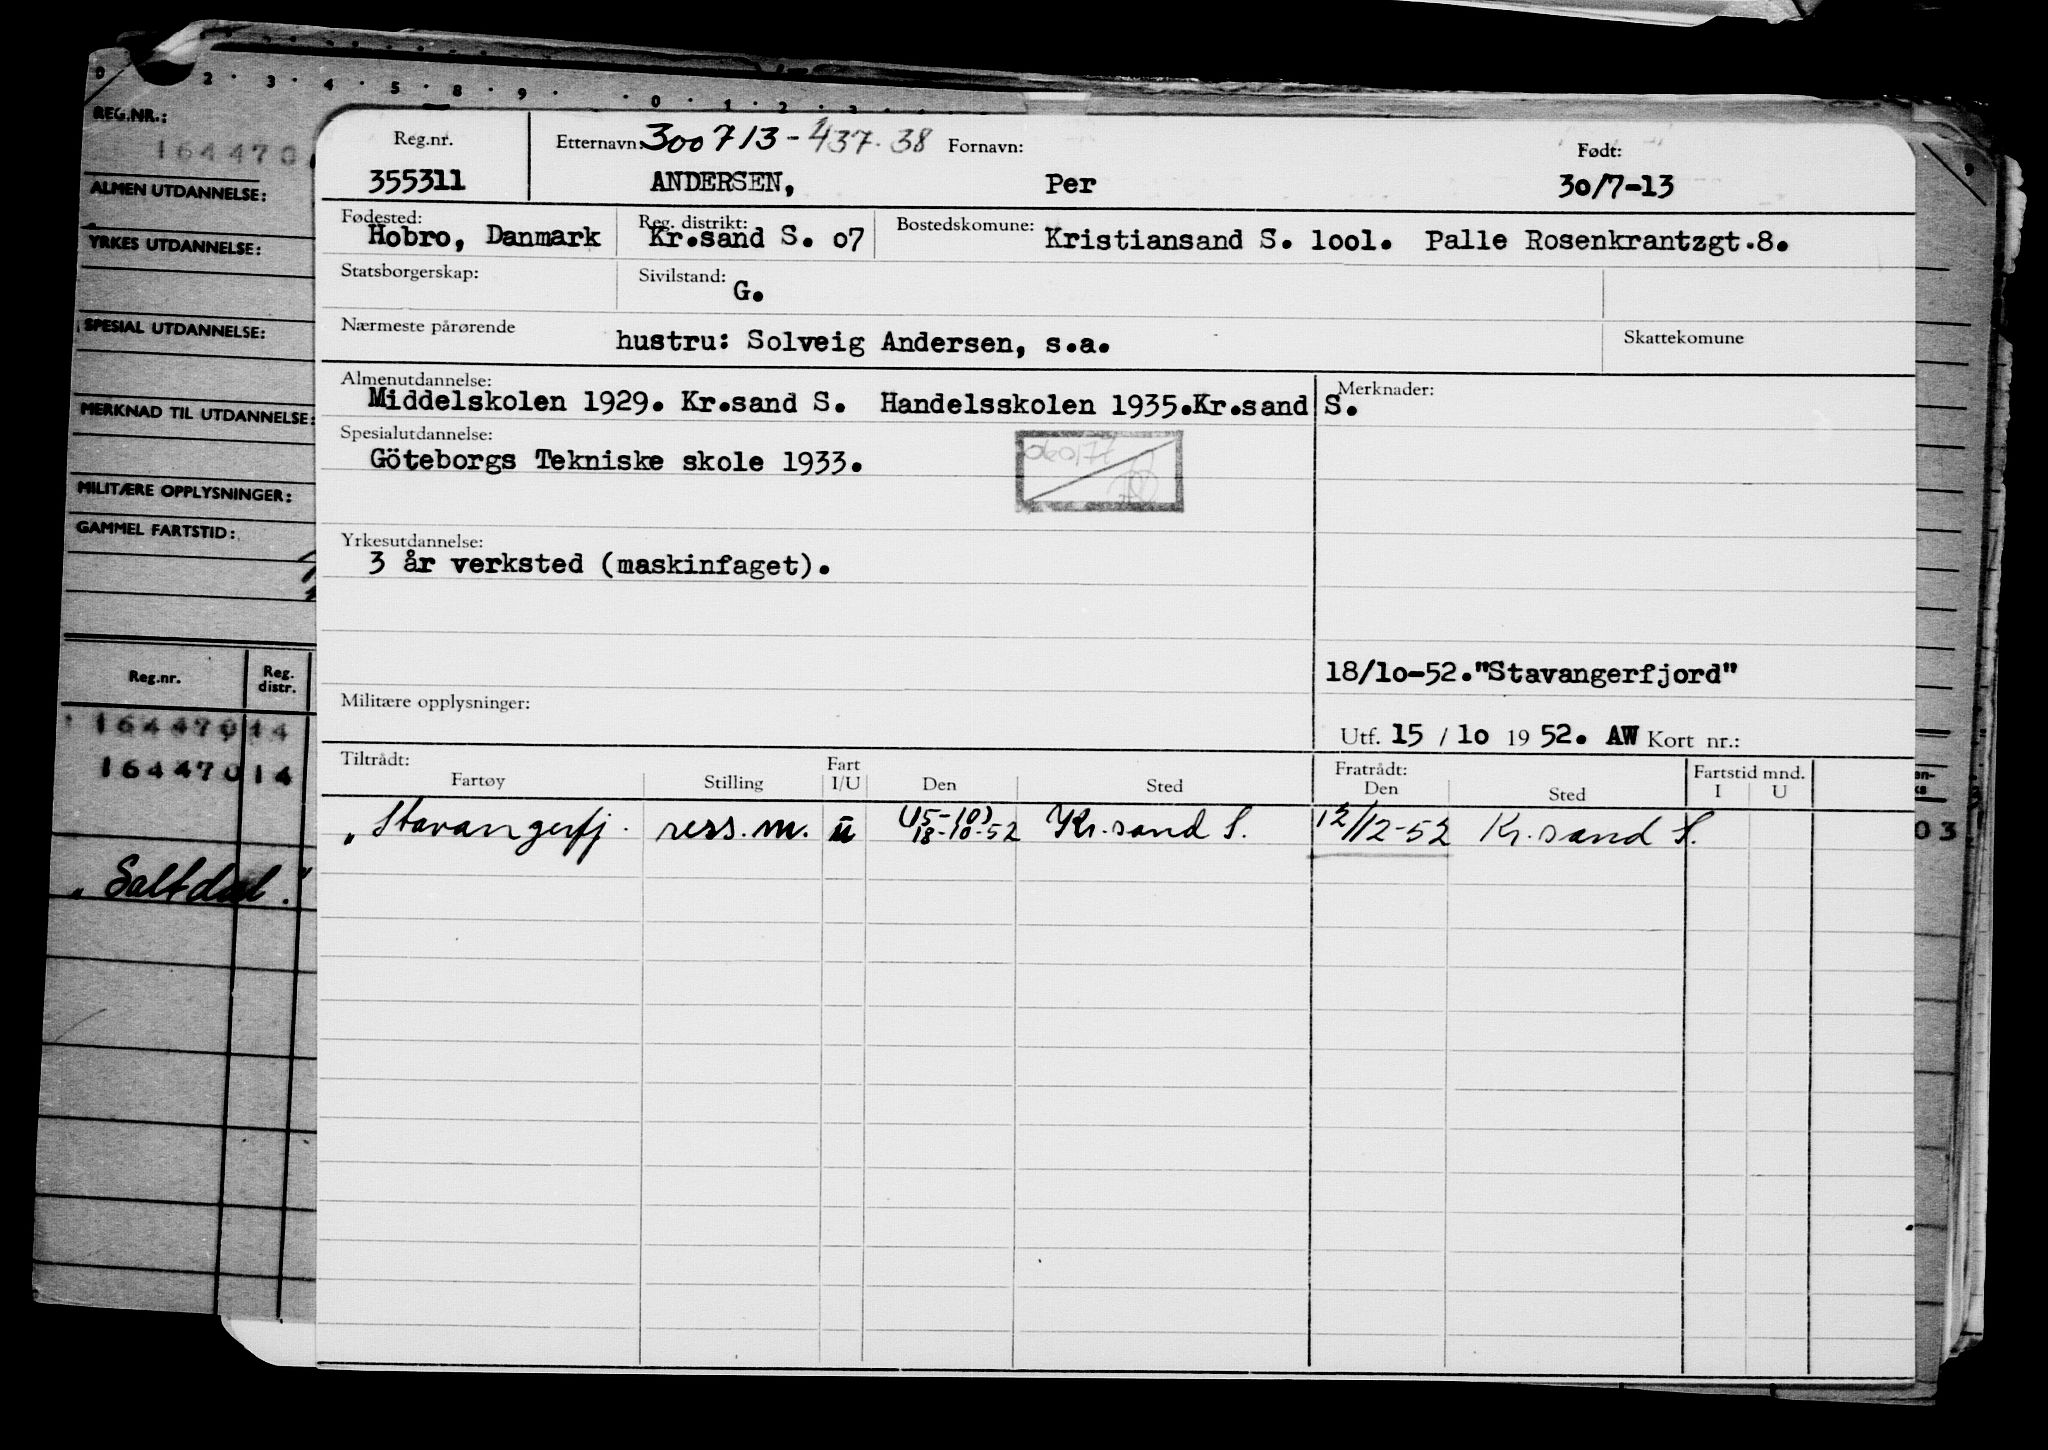 0 2 · 3 · 4 · 5 · 8 · 9 · · 0 · 1 · 2 · 3
REG.NR.:
164470
ALMEN UTDANNELSE:
YRKES UTDANNELSE:
SPESIAL UTDANNELSE:
MERKNAD TIL UTDANNELSE:
MILITÆRE OPPLYSNINGER:
GAMMEL FARTSTID:
Reg.nr. Reg. distr.
16447014
16447014
03
"Saltdal."
Reg.nr. Etternavn: 300713-437.38 Fornavn: Født:
355311 ANDERSEN, Per 30/7-13
Fødested: Reg. distrikt: Bostedskomune:
Hobro, Danmark Kr.sand S. o7 Kristiansand S. lool. Palle Rosenkrantzgt.8.
Statsborgerskap: Sivilstand: G.
Nærmeste pårørende hustru: Solveig Andersen, s.a. Skattekomune
Almenutdannelse: Merknader:
Middelskolen 1929. Kr.sand S. Handelsskolen 1935.Kr.sand S.
Spesialutdannelse:
Göteborgs Tekniske skole 1933.
Yrkesutdannelse:
3 år verksted (maskinfaget).
18/lo-52."Stavangerfjord"
Militære opplysninger:
Utf. 15 / lo 19 52. AW Kort nr.:
Tiltrådt: Fart Fratrådt: Fartstid mnd.
Fartøy Stilling I/U Den Sted Den Sted I U
"Stavangerfj. ress.m. u (15-10) 18-10-52 Kr.sand S. 12/12-52 Kr.sand S.